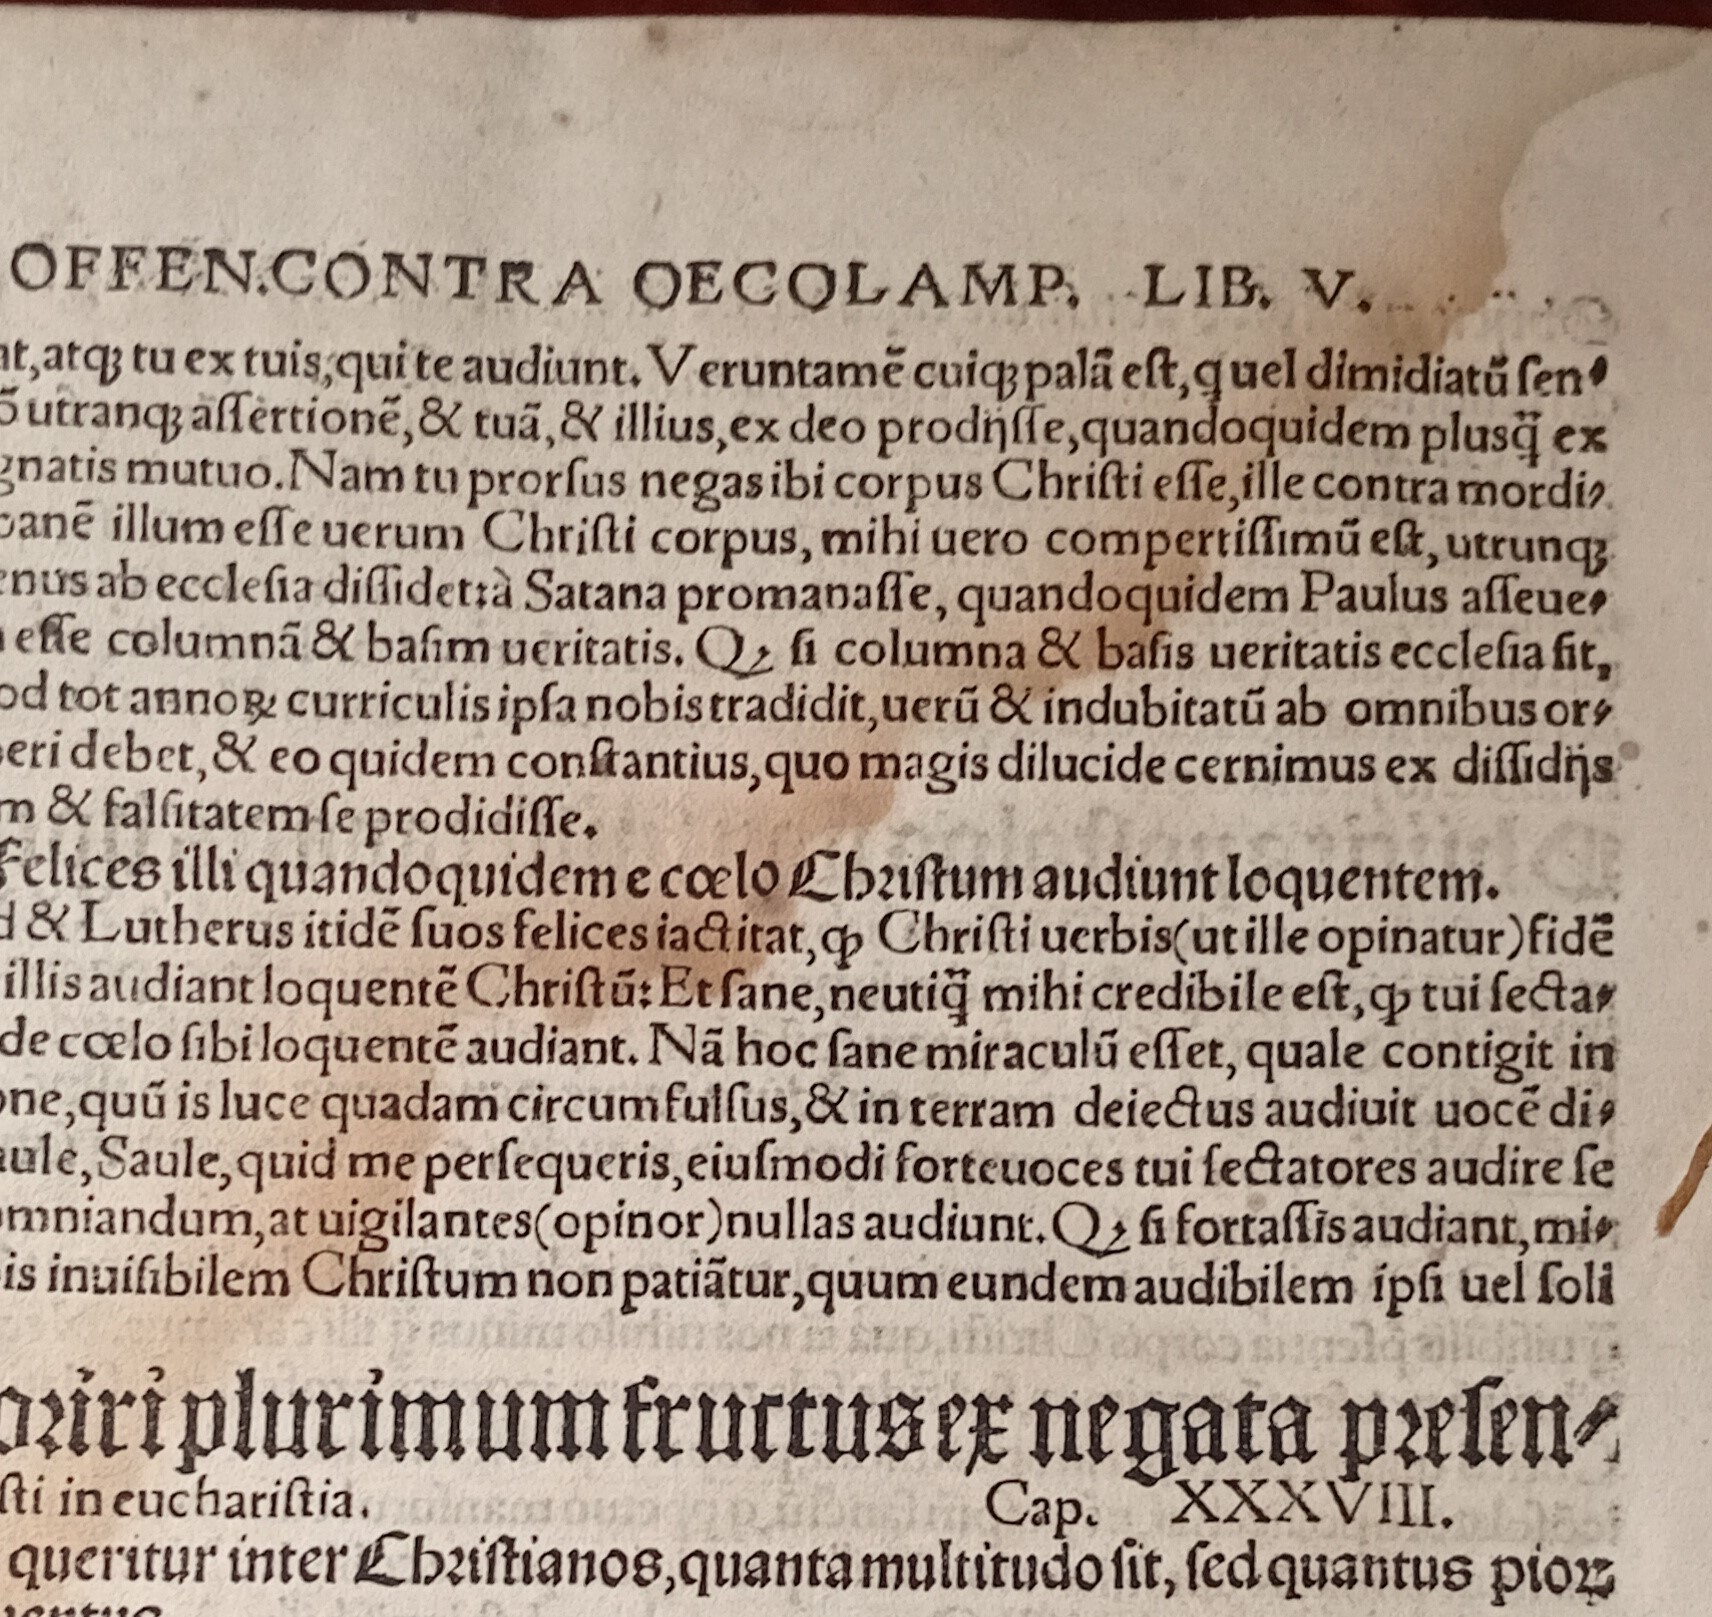 OFFEN.CONTRA OECOLAMP. LIB. V.
nt,atq; tu ex tuis,qui te audiunt. Veruntamẽ cuiq; palã eſt,q uel dimidiatũ ſen⸗
õ utranq; aſſertionẽ,& tuã,& illius,ex deo prodijſſe,quandoquidem plusq̃ ex
gnatis mutuo.Nam tu prorſus negas ibi corpus Chriſti eſſe,ille contra mordi⸗
panẽ illum eſſe uerum Chriſti corpus, mihi uero compertiſſimũ eſt, utrunq;
enus ab eccleſia diſſidet:à Satana promanaſſe, quandoquidem Paulus aſſeue⸗
eſſe columnã & baſim ueritatis. Qꝫ ſi columna & baſis ueritatis eccleſia ſit,
od tot annoꝝ curriculis ipſa nobis tradidit,uerũ & indubitatũ ab omnibus or⸗
peri debet,& eo quidem conſtantius,quo magis dilucide cernimus ex diſſidijs
m & falſitatem ſe prodidiſſe.
Felices illi quandoquidem e cœlo Chriſtum audiunt loquentem.
d & Lutherus itidẽ ſuos felices iactitat,ꝙ Chriſti uerbis(ut ille opinatur)fidẽ
illis audiant loquentẽ Chriſtũ: Et ſane,neutiq̃ mihi credibile eſt,ꝙ tui ſecta⸗
de cœlo ſibi loquentẽ audiant. Nã hoc ſane miraculũ eſſet, quale contigit in
one,quũ is luce quadam circumfulſus,& in terram deiectus audiuit uocẽ di⸗
aule,Saule,quid me perſequeris,eiuſmodi forte uoces tui ſectatores audire ſe
omniandum,at uigilantes(opinor)nullas audiunt.Qꝫ ſi fortaſſis audiant,mi⸗
is inuiſibilem Chriſtum non patiãtur,quum eundem audibilem ipſi uel ſoli
oriri plurimum fructus ex negata preſen⸗
ſti in euchariſtia. Cap. XXXVIII.
queritur inter Chriſtianos,quanta multitudo ſit, ſed quantus pioꝝ